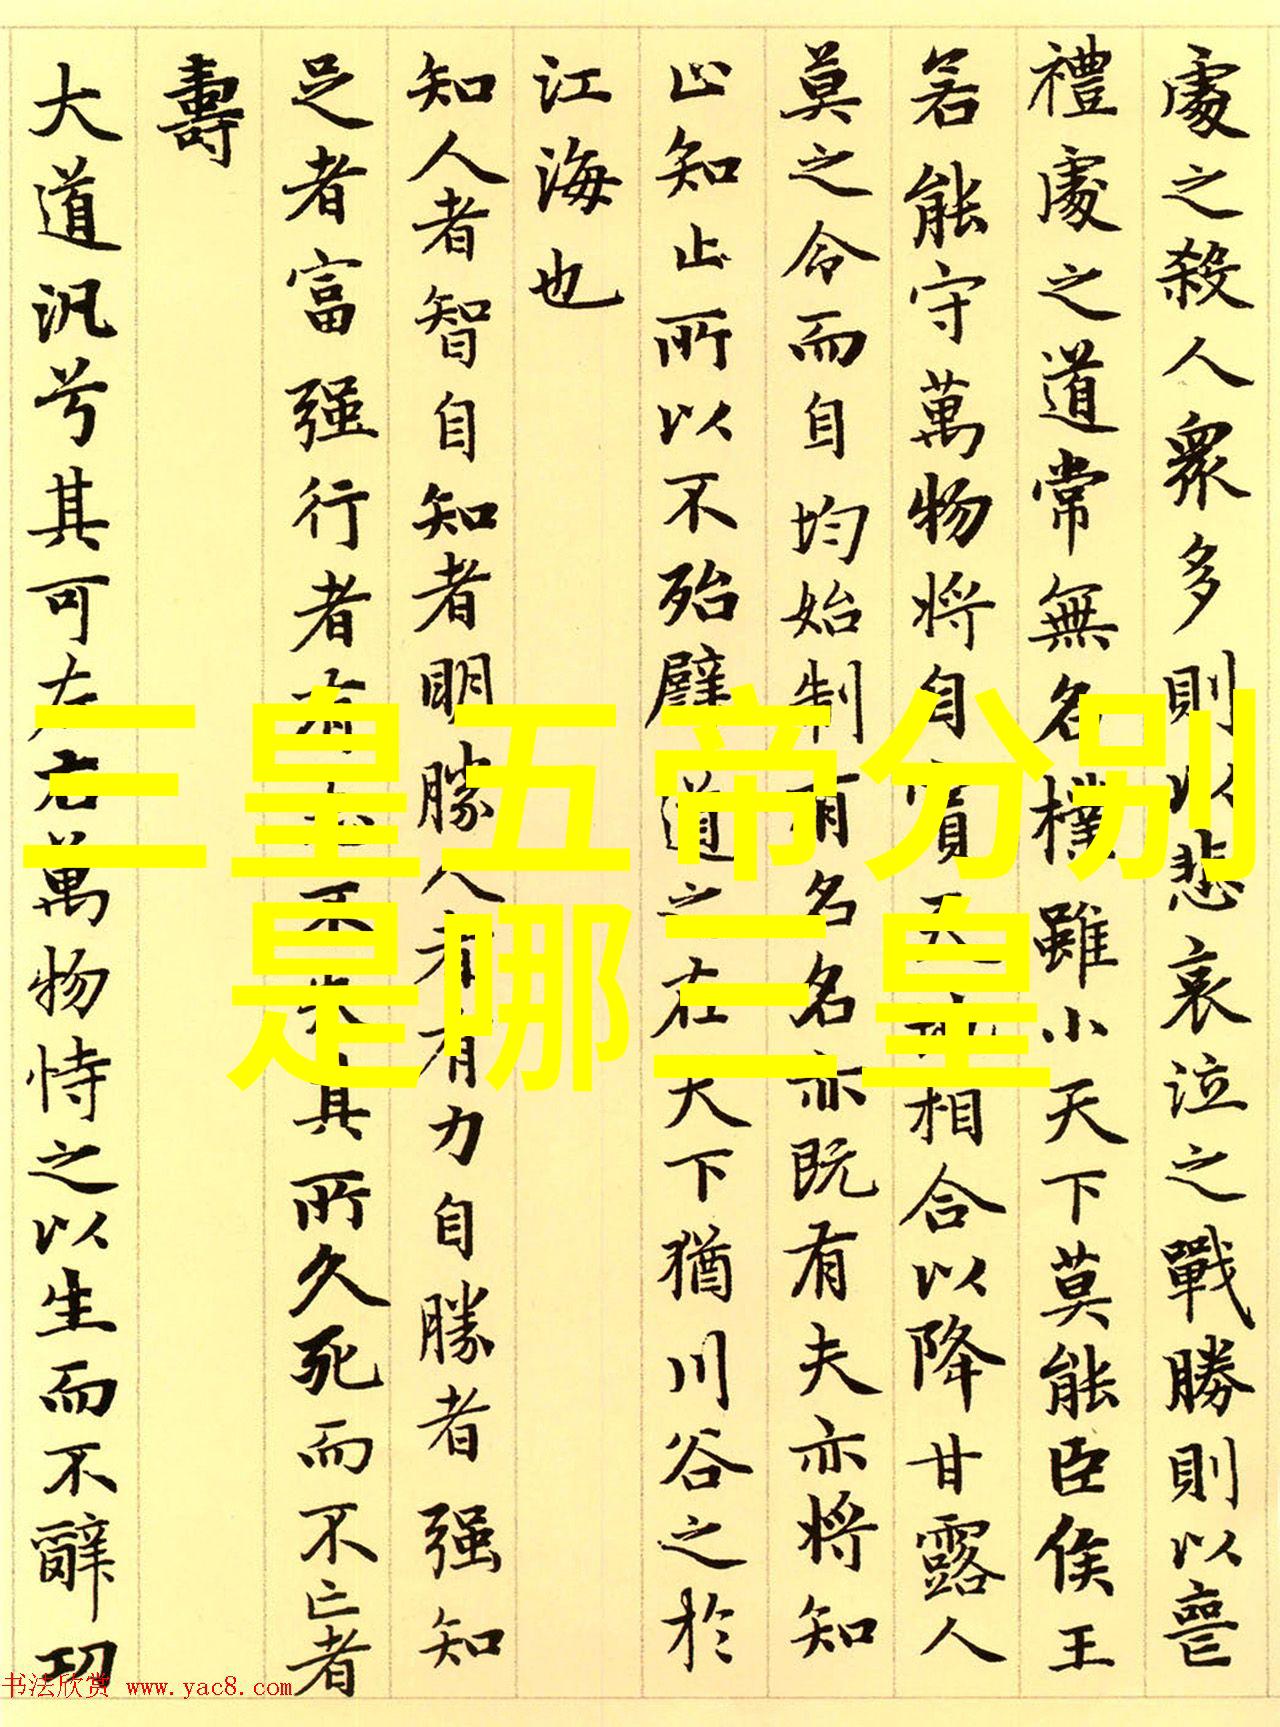 處之殺人衆多則以悲哀泣之戰勝則以喪
禮處之道常無名樸雖小天下莫能臣侯王
若能守萬物將自賓天地相合以降甘露人
莫之令而自均始制有名名亦既有夫亦将知
止知止所以不殆譬道之在天下猶川谷之於
江海也
知人者智自知者明勝人者有力自勝者强知
足者富强行者有志不失其所久死而不亡者
壽
大道汎兮其可左右萬物恃之以生而不辭功
三皇五帝分别
是哪三皇
书法欣赏 www.yac8.com